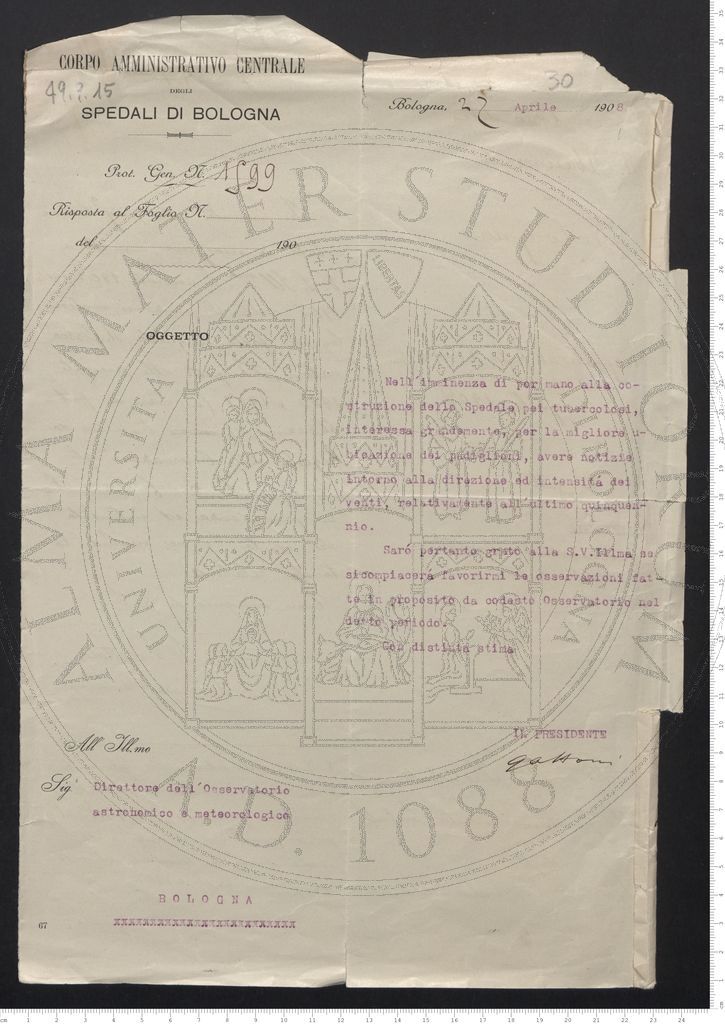 CORPO AMMINISTRATIVO CENTRALE
DEGLI
SPEDALI DI BOLOGNA
30
Bologna, 27 Aprile 1908
Prot. Gen. N. 1599
Risposta al Foglio N.
del 190
OGGETTO
Nell'imminenza di por mano alla co-
struzione dello Spedale pei tubercolosi,
interessa grandemente, per la migliore u-
bicazione dei padiglioni, avere notizie
intorno alla direzione ed intensitá dei
venti, relativamente all'ultimo quinquen-
nio.
Saró pertanto grato alla S.V.Illma se
sicompiacerá favorirmi le osservazioni fat-
te in proposito da codesto Osservatorio nel
detto periodo.
Con distinta stima
IL PRESIDENTE
All' Ill.mo
Sig. Direttore dell'Osservatorio
astronomico e meteorologico
BOLOGNA
xxxxxxxxxxxxxxxxxxxxxxxx
67
ALMA MATER STUDIORUM
UNIVERSITA
BONONIA
LIBERTAS
A.D. 1088